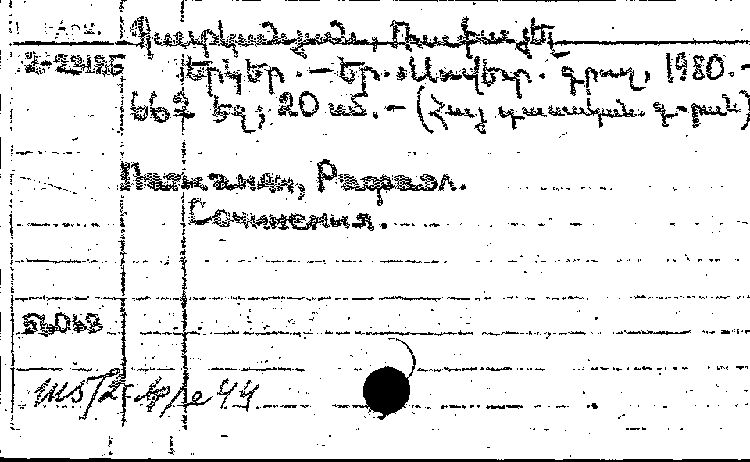 Պատկանյան, Ռափայել
2-23125 Երկեր. – Եր.: Սովետ. գրող, 1980. –
662 էջ; 20 սմ. – (Հայ դասական. գ-րան)
Патканян, Рафаэл.
Сочинения.